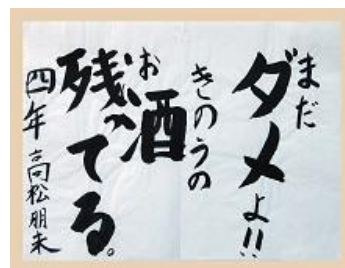 まだ
ダメよ!!
きのうの
お酒
残ってる。
四年 高松朋来